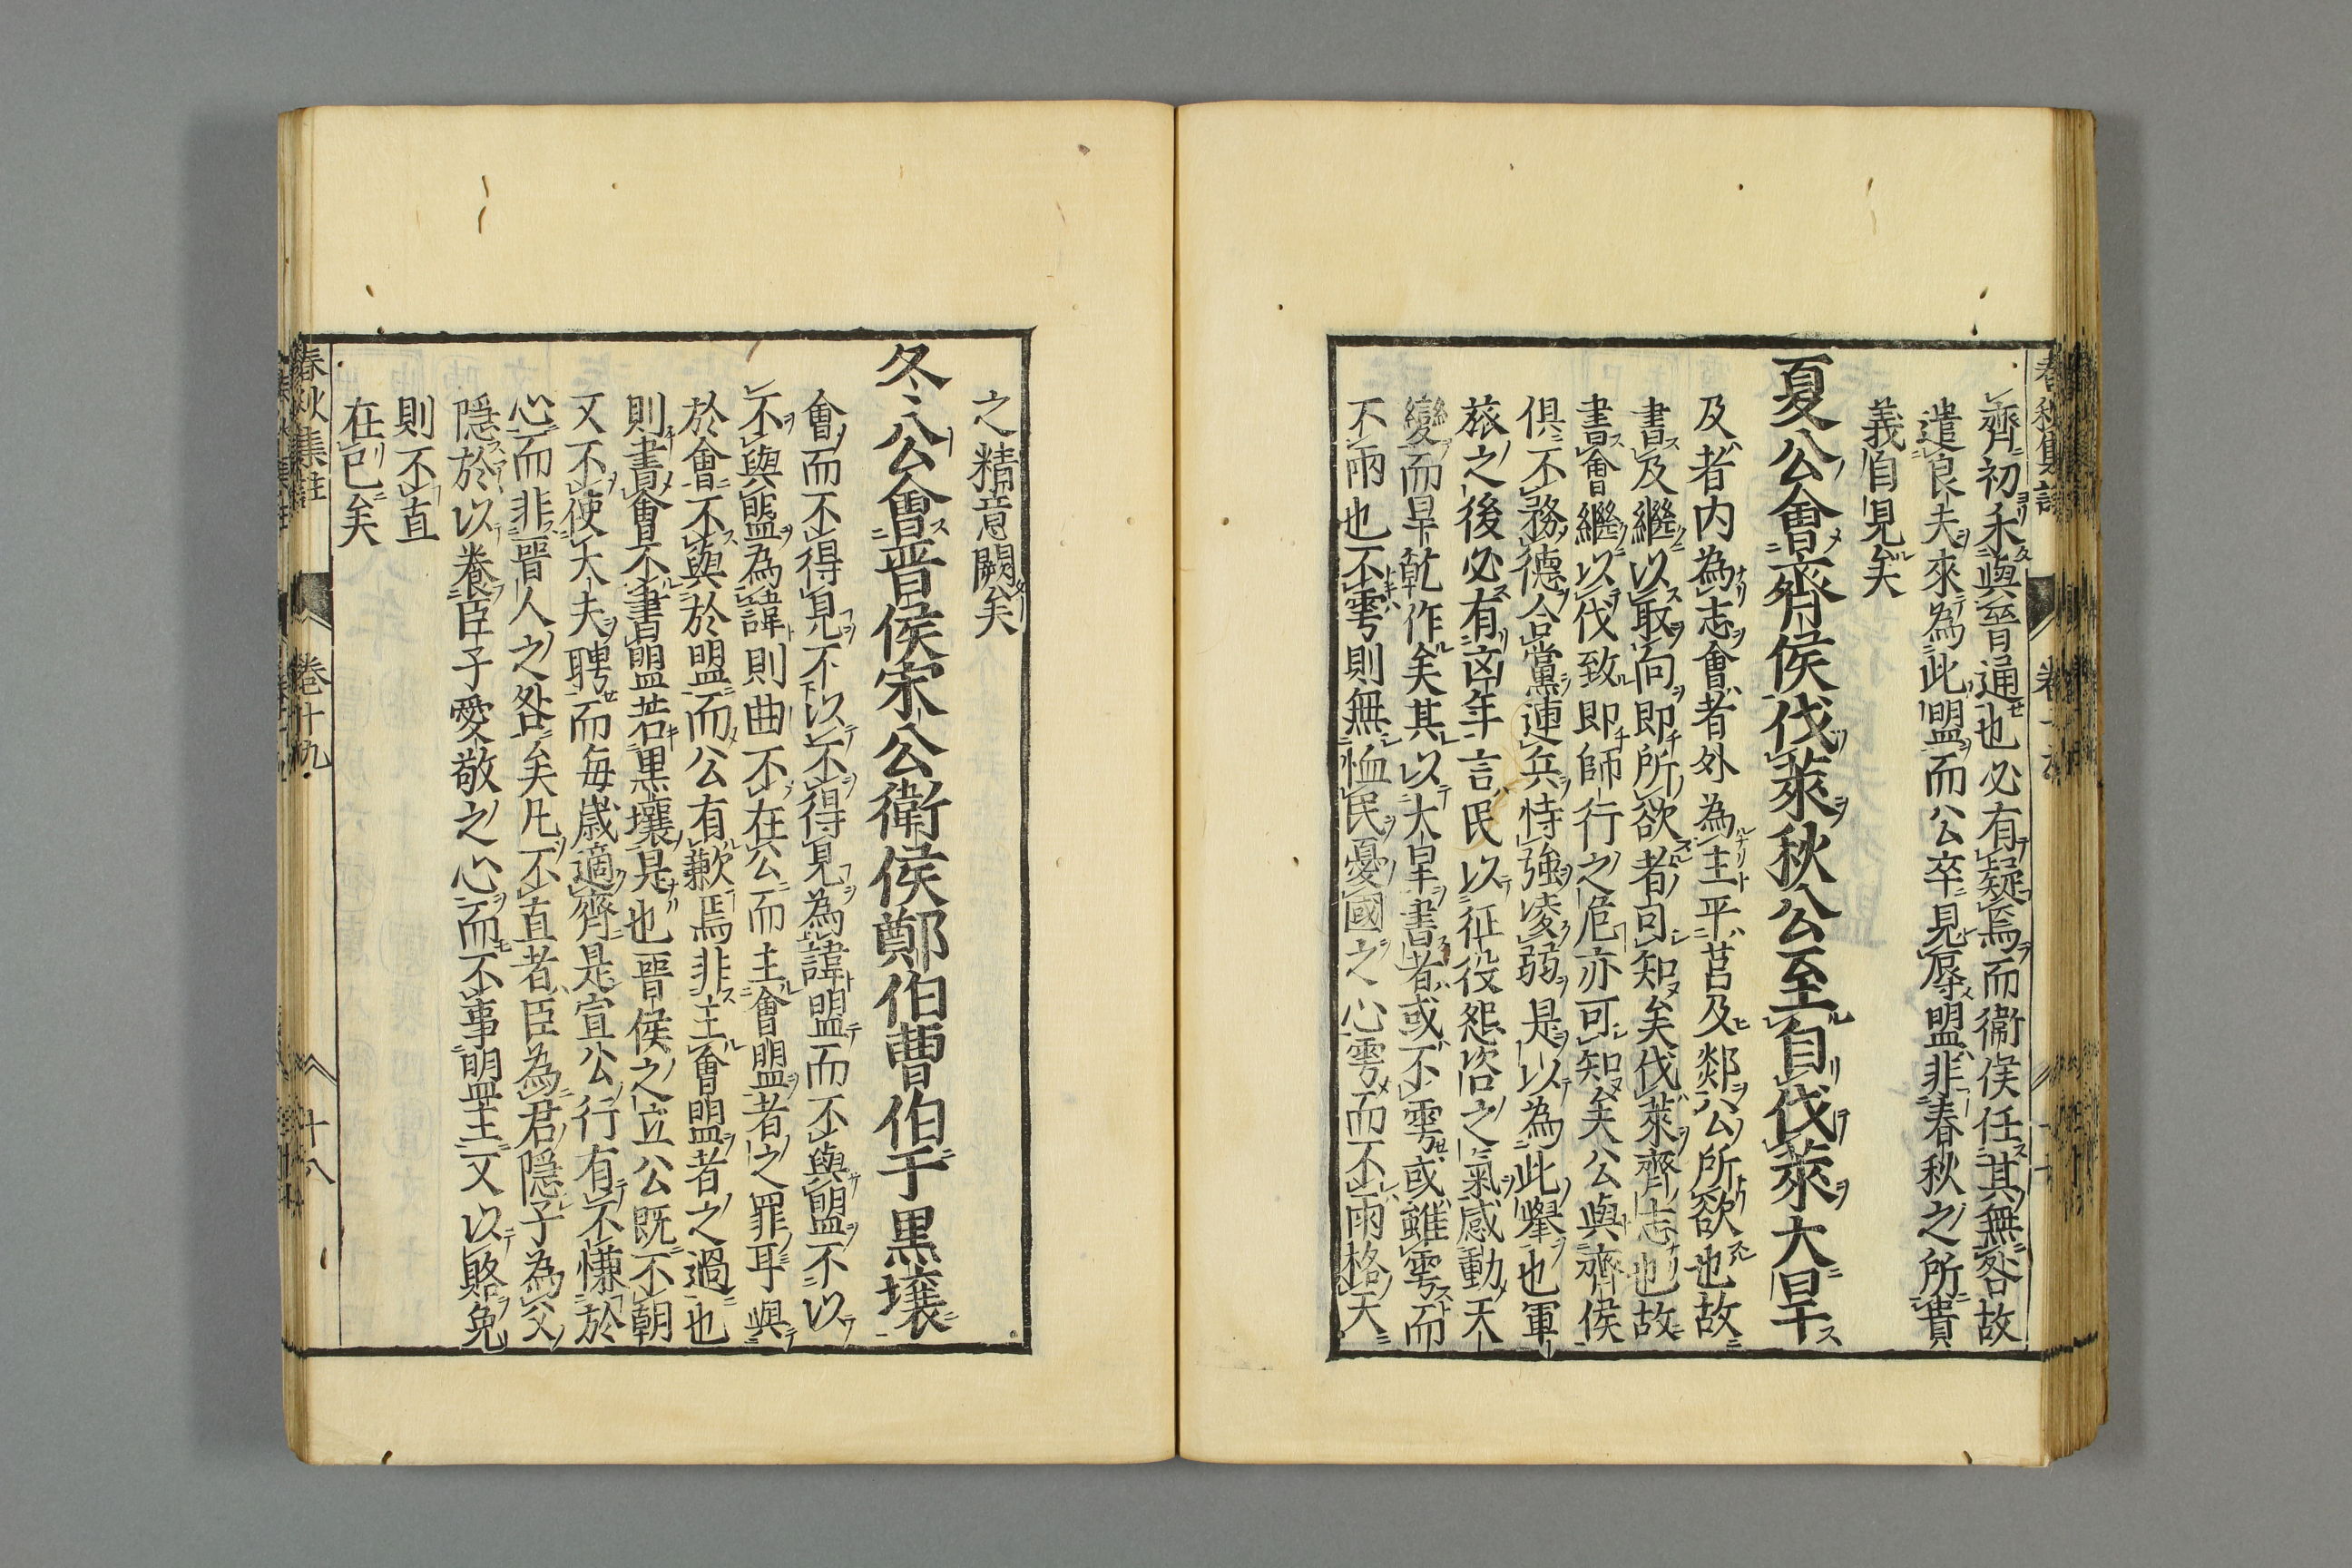 齊初未與晉通也必有疑焉而衞侯任其無咎故
遣良夫來為此盟而公卒見辱盟非春秋之所貴
義自見矣
夏公會齊侯伐萊秋公至自伐萊大旱
及者内為志會者外為主平莒及郯公所欲也故
書及繼以取向即所欲者可知矣伐萊齊志也故
書會繼以伐致即師行之危亦可知矣公與齊侯
俱不務德合黨連兵恃強凌弱是以為此舉也軍
旅之後必有凶年言民以征役怨咨之氣感動天
變而旱乾作矣其以大旱書者或不雩或雖雩而
不雨也不雩則無恤民憂國之心雩而不雨格天
之精意闕矣
冬公會晋侯宋公衛侯鄭伯曹伯于黒壤
會而不得見不以不得見為諱盟而不與盟不以
不與盟為諱則曲不在公而主會盟者之罪耳與
於會不與於盟而公有歉焉非主會盟者之過也
則書會不書盟若黒壤是也晉侯之立公既不朝
又不使大夫聘而毎歳適齊是宣公行有不慊於
心而非晉人之咎矣凡不直者臣為君隱子為父
隱於以養臣子愛敬之心而不事盟主又以賂免
則不直
在已矣
春秋集註 卷十九 十八